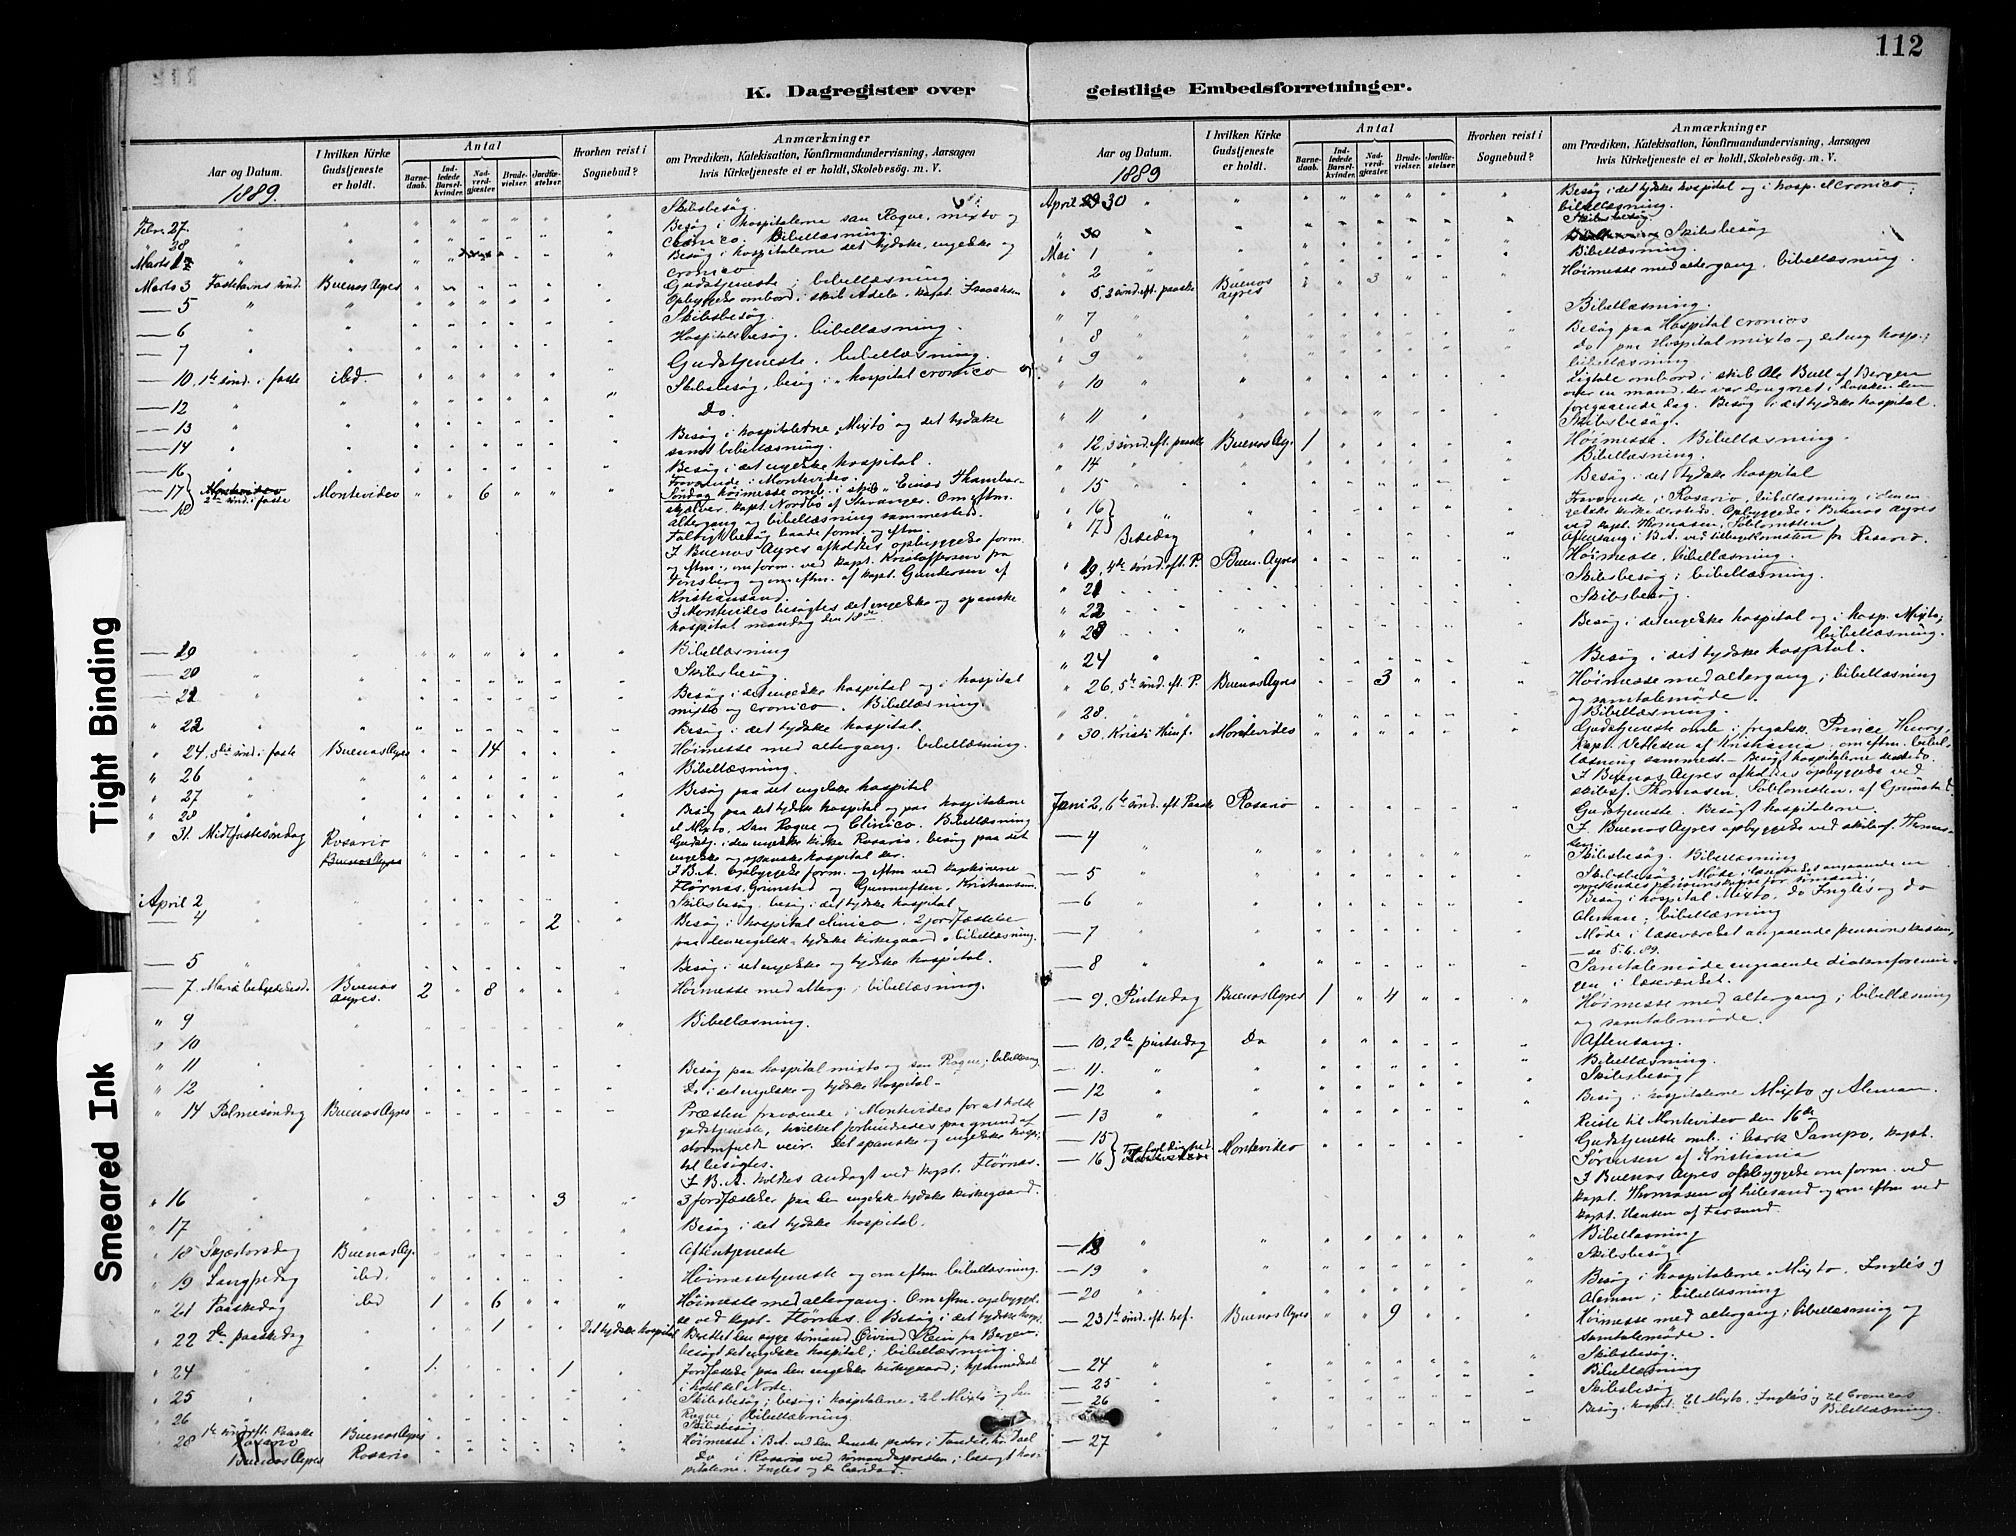 112
K. Dagregister over
geistlige Embedsforretninger.
Aar og Datum.
1889.
I hvilken Kirke
Gudstjeneste
er holdt.
Antal
Barne-
daab.
Ind-
ledede
Barsel-
kvinder.
Nad-
verd-
gjæster.
Brude-
vielser.
Jordfæ-
stelser.
Hvorhen reist i
Sognebud?
Anmærkninger
om Prædiken, Katekisation, Konfirmandundervisning, Aarsagen
hvis Kirketjeneste ei er holdt, Skolebesøg. m. V.
Febr. 27. Skibsbesøg.
" 28 Besøg i hospitalerne san Roque, mixto og
cronico. Bibellæsning.
Marts Besøg i hospitalerne det tydske, engelske og
cronico
Marts 3 Fastelavns sønd. Buenos Ayres Gudstjeneste; bibellæsning.
— 5 Opbyggelse ombord i skib Adele, kapt. Isaaksen
— 6 Skibsbesøg.
— 7 Hospitalsbesøg. bibellæsning.
— 10. 1te sønd. i faste ibd. Gudstjeneste. bibellæsning.
— 12 Skibsbesøg, besøg i hospital cronico
— 13 Do.
— 14 Besøg i hospitalerne Mixto og det tydske
samt bibellæsning.
— 16 Besøg i det engelske hospital.
— 17 } 2den sønd. i faste Montevideo 6 Fraværende i Montevideo.
— 18 Søndag høimesse omb. i skib Einar Thambar-
skjælver, kapt. Nordbø af Stavanger. Om eftm.
altergang og bibellæsning sammesteds.
Talrigt besøg baade form. og eftm.
I Buenos Ayres afholdtes opbyggelse form.
og eftm., om form. ved kapt. Kristoffersen fra
Tønsberg og om eftm. af kapt. Gundersen af
Kristiansand.
I Montevideo besøgtes det engelske og spanske
hospital mandag den 18de.
— 19 Bibellæsning
— 20 Skibsbesøg.
— 21 Besøg i det engelske hospital og i hospital
mixto og cronico. Bibellæsning.
" 22 Besøg i det tydske hospital.
" 24. 3die sønd. i faste Buenos Ayres 14 Høimesse med altergang. bibellæsning.
" 26 Bibellæsning.
" 27 Besøg paa det engelske hospital
" 28 Besøg paa det tydske hospital og paa hospitalerne
el Mixto, San Roque og Clinico. Bibellæsning
" 31. Midtfastesøndag Rosario Gudstj. i den engelske kirke Rosario, besøg paa det
Buenos Ayres engelske og spanske hospital der.
I B.A. Opbyggelse form. og eftm ved kapteinene
Flørnæs, Grimstad og Gunnufsen, Kristiansand.
April 2 Skibsbesøg. besøg i det tydske hospital
— 4 2 Besøg i hospital clinico. 2 jordfæstelse
paa den engelsk-tydske kirkegaard. bibellæsning.
— 5 Besøg i det engelske og tydske hospital.
— 7. Mariæ bebudelsesd. Buenos 2 8 Høimesse med alterg.; bibellæsning.
Ayres.
" 9 Bibellæsning.
" 10
" 11 Besøg paa hospital mixto og san Roque; bibellæsning
" 12 Do i det engelske og tydske Hospital
" 14 Palmesøndag Buenos Ayres Præsten fraværende i Montevideo for at holde
gudstjeneste, hvilket forhindredes paa grund af
stormfuldt veir. Det spanske og engelske hospi-
tal besøgtes.
I B.A. holdes andagt ved kapt. Flørnæs.
" 16 3 3 jordfæstelser paa den engelsk tydske kirkegaard.
" 17 Besøg i det tydske hospital.
" 18 Skjærtorsdag Buenos Ay. Aftentjeneste
" 19 Langfredag ibd. Høimessetjeneste og om eftm bibellæsning.
" 21 Paaskedag ibd 1 6 Høimesse med altergang. Om eftm. opbyggel-
se ved kapt. Flørnæs. Besøg i det tydske hospt.
" 22 2den paaskedag 1 Det tydske hospital Berettet den syge sømand Eivind Klein fra Bergen
besøgt det engelske hospital; bibellæsning.
" 24 1 1 Jordfæstede paa den engelske kirkegaard; hjemmedaab
i hotel del Norte.
" 25 Skibsbesøg; besøg i hospitalerne el Mixto og San
Roque; bibellæsning.
" 26 Skibsbesøg
" 28 1te sønd. eft. Paaske Buenos Ayres Høimesse i B.A. ved den danske pastor i Tandil,
Buenos Ayres Rosario Do i Rosario ved sømandspresten; besøgt hos-
pitalerne
Aar og Datum.
1889
I hvilken Kirke
Gudstjeneste
er holdt.
Antal
Barne-
daab.
Ind-
ledede
Barsel-
kvinder.
Nad-
verd-
gjæster.
Brude-
vielser.
Jordfæ-
stelser.
Hvorhen reist i
Sognebud?
Anmærkninger
om Prædiken, Katekisation, Konfirmandundervisning, Aarsagen
hvis Kirketjeneste ei er holdt, Skolebesøg. m. V.
April 30 Besøg i det tydske hospital og i hosp. el cronico;
bibellæsning.
" 30 Skibsbesøg
Mai 1 Bibellæsning.
" 2 Høimesse med altergang. bibellæsning.
" 5. 2 sønd. eft. paaske Buenos 3
Ayres
" 7 Bibellæsning.
" 8 Besøg paa Hospital cronicos
" 9 do paa Hospital mixto og det eng hosp.;
bibellæsning
" 10 Ligtale ombord i skib Ole Bull af Bergen
over en mand, der var drugnet i dokken den
foregaaende dag. Besøg i det tydske hospital.
" 11 Skibsbesøg.
" 12. 3 sønd. eft. paaske Buenos Ay. 1 Høimesse. Bibellæsning.
" 14 Bibellæsning.
" 15 Besøg i det tydske hospital
" 16 } Fraværende i Rosario, bibellæsning i den en-
" 17 } Bededag gelske kirke dersteds. Opbyggelse i Buenos Ayres
ved kapt. Thomassen, Søblomsten
Aftensang i B.A. ved tilbagekomsten fr Rosario.
" 19. 4de sønd. eft. P. Buen. Ayres Høimesse, bibellæsning.
" 21 Skibsbesøg; bibellæsning.
" 22 Skibsbesøg.
" 23 Besøg i det engelske hospital og i hosp. Mixto;
bibellæsning.
" 24 Besøg i det tydske hospital.
" 26. 5te sønd. eft. P. Buenos Ayres 3 Høimesse med altergang; bibellæsning
og samtalemøde.
" 28. Bibellæsning.
" 30. Kristi Himf. Montevideo Gudstjeneste omb. i fregatsk. Prince Henry,
kapt. Vetlesen af Kristiania; om eftm. bibel-
læsning sammest. - Besøgt hospitalerne dersteds.
I Buenos Ayres afholdtes opbyggelse ved
skibsf. Thomassen, Søblomsten, af Grimstad.
Juni 2. 6te sønd. eft. Paaske Rosario Gudstjeneste. Besøgt hospitalerne.
I Buenos Ayres opbyggelse ved skibsf. Thomas-
sen.
— 4 Skibsbesøg. Bibellæsning
— 5 Skibsbesøg, Møde i læseværelset angaaende en
oprettendes pensionskasse for sømænd.
— 6 Besøg i hospital Mixto, do Ingles og do
Aleman; bibellæsning
— 7 Møde i læseværelset angaaende pensionskassen,
se 5. 6. 89.
— 8 Samtalemøde angaaende diakonforenin-
gen i læseværelset.
— 9. Pintsedag Buenos Ayres 1 4 Høimesse med altergang; bibellæsning
og samtalemøde.
— 10. 2den pintsedag Do Aftensang.
— 11. Bibellæsning.
— 12 Skibsbesøg
— 13 Besøg i hospitalerne Mixto og Aleman.
— 15 } Reiste til Montevideo den 16de
— 16 } Trefoldighed Montevideo Gudstjeneste omb. i bark Sampo, kapt.
Sørensen af Kristiania
I Buenos Ayres opbyggelse om form. ved
kapt. Thomasen af Lillesand og om eftm ved
kapt. Hansen af Farsund.
— 18 Bibellæsning
— 19 Skibsbesøg
— 20 Besøg i hospitalerne Mixto, Inglés og
Aleman; bibellæsning
— 23 1te sønd. eft. tref. Buenos Ayres 9 Høimesse med altergang; bibellæsning og
samtalemøde.
— 24 Skibsbesøg.
— 25 Bibellæsning
— 26 Skibsbesøg
— 27 Besøg hospit. el Mixto, Inglés og el Cronicos
Bibellæsning.
Tight Binding
Smeared Ink